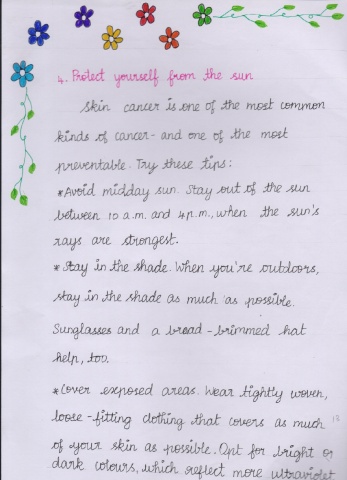 4. Protect yourself from the sun
Skin cancer is one of the most common
kinds of cancer - and one of the most
preventable. Try these tips:
*Avoid midday sun. Stay out of the sun
between 10 a.m. and 4 p.m., when the sun's
rays are strongest.
* Stay in the shade. When you're outdoors,
stay in the shade as much as possible.
Sunglasses and a broad-brimmed hat
help, too.
*Cover exposed areas. Wear tightly woven,
loose-fitting clothing that covers as much
of your skin as possible. Opt for bright or
dark colours, which reflect more ultraviolet